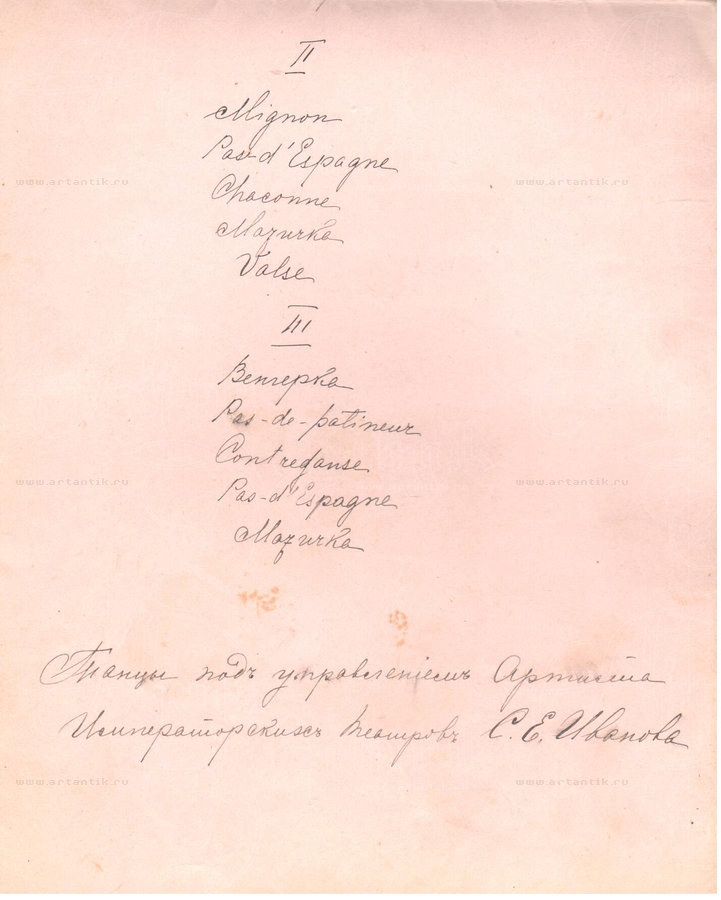 II
Mignon
Pas d'Espagne
Chaconne
Mazurka
Valse
III
Венгерка
Pas-de-patineur
Contredanse
Pas-d'Espagne
Mazurka
Танцы подъ управленіемъ Артиста
Императорскихъ театровъ С. Е. Иванова
www.artantik.ru www.artantik.ru
www.artantik.ru www.artantik.ru
www.artantik.ru www.artantik.ru